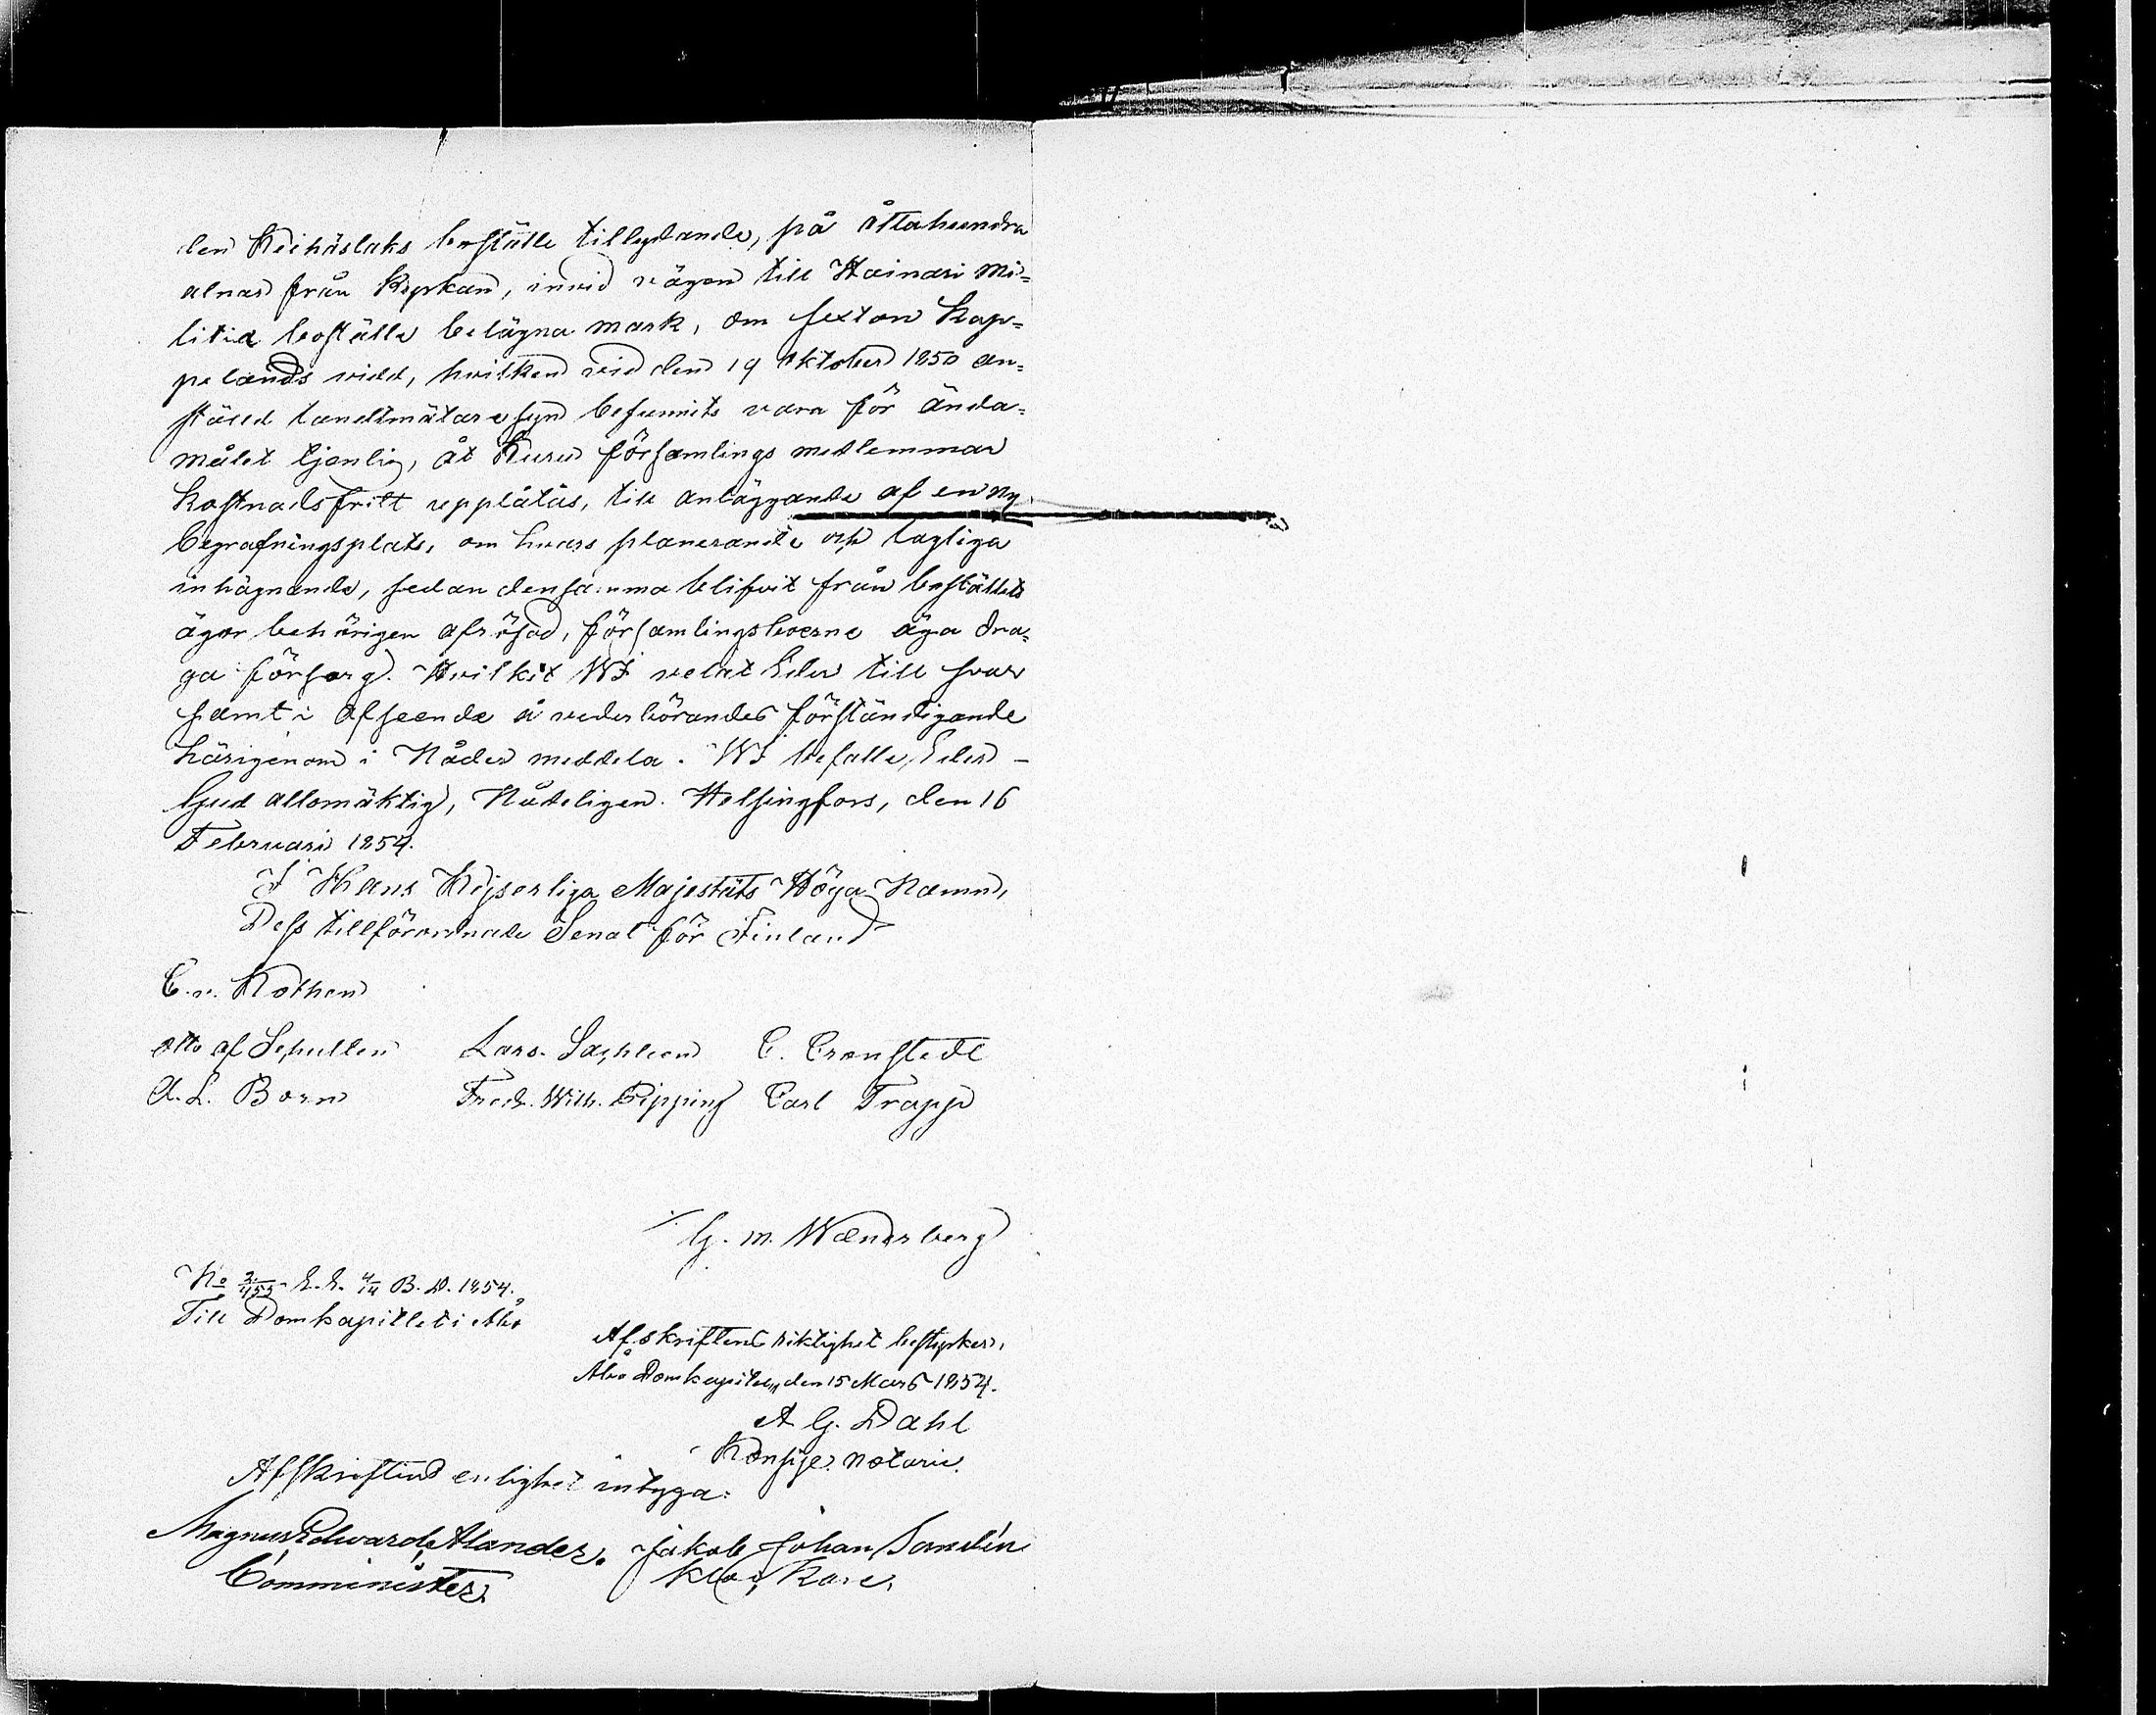 den Keihäslaks boställe tillydande, på åttahundra
alnar från Kyrkan, invid vägen till Hainari Mi=
litiæ boställe belägna mark, om sexton Kap=
pelands vidd, hvilken vid den 19 Oktober 1850 an=
stäld landtmätaresyn befunnits vara för ända=
målet tjenlig, åt Kuru församlings medlemmar
kostnadsfritt upplåtas, till anläggande af en ny
begrafningsplats, om hvars planerande och lagliga
inhägnande, sedan densamma blifvit från boställets
ägor behörigen afrösad, församlingsboerne äga dra=
ga försorg. Hvilket WI velat Eder till svar
samt i afseende å vederbörandes förständigande
härigenom i Nåder meddela. WI befalle Eder
Gud allsmäktig, Nådeligen. Helsingfors, den 16
Februari 1854.
I Hans Kejserliga Majestäts Höga Namn,
Dess tillförordnade Senat för Finland
C. v. Kothen
Otto af Schulten Lars Sackleen C. Cronstedt
A. L. Born Fredr. Wilh. Pipping Carl Trapp
G. M. Wænerberg
No E. E. B. D. 1854.
Till Domkapitlet i Åbo
Afskriftens riktighet bestyrker,
Åbo Domkapitel, den 15 Mars 1854.
A G. Dahl
Konsist. Notarie.
Afskriftens enlighet intyga:
Magnus Edward Alander. Jakob Johan Sandén
Comminister. Klockare.